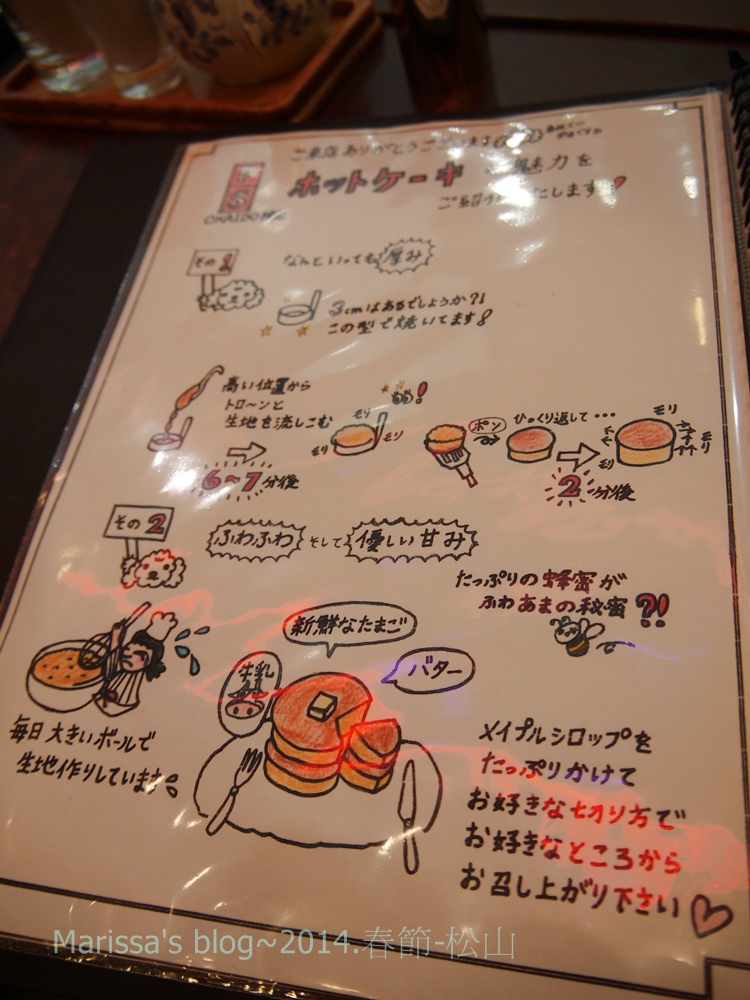 ご来店ありがとうございます
ホットケーキの魅力を
ご紹介いたします!
その1
なんといっても厚み
3cmはあるでしょうか?!
この型で焼いてます
高い位置から
トローンと
生地を流しこむ
6~7分後
モリ
モリ
モリ
!
ポン
ひっくり返して・・・
2分後
モリ
モリ
モリ
その2
ふわふわ そして 優しい甘み
たっぷりの蜂蜜が
ふわあまの秘密?!
新鮮なたまご
牛乳
バター
毎日大きいボールで
生地作りしています
メイプルシロップを
たっぷりかけて
お好きな切り方で
お好きなところから
お召し上がり下さい
Marissa's blog~2014.春節-松山